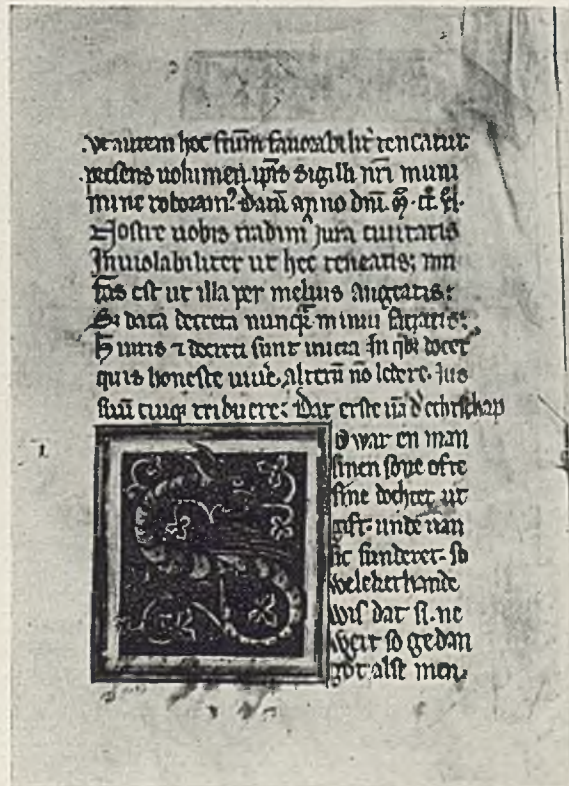 .Vt autem hoc firmū fauorabilit' teneatur
presens uolumen. ipsiꝰ sigilli nr̄i muni
mine roboram'. Datū anno dn̄i. ꝏ. cc. xl.
Nostre uobis tradim' jura ciuitatis
Inuiolabiliter ut hec teneatis; nō
fas est ut illa per melius augeatis:
Si data decreta nunqꝫ minui faciatis:
Huiꝰ ⁊ decreti sunt inicia In qibꝰ docet
quis honeste uiuere, alterū nō ledere. Ius
suū cuiqꝫ tribuere: Dat erste uā d'echtschap
o war en man
sinen sone ofte
sine dochter ut
gift. unde uan
sic sunderet. so
welekerhande
wis dat si. ne
wert so gedan
got alse men.